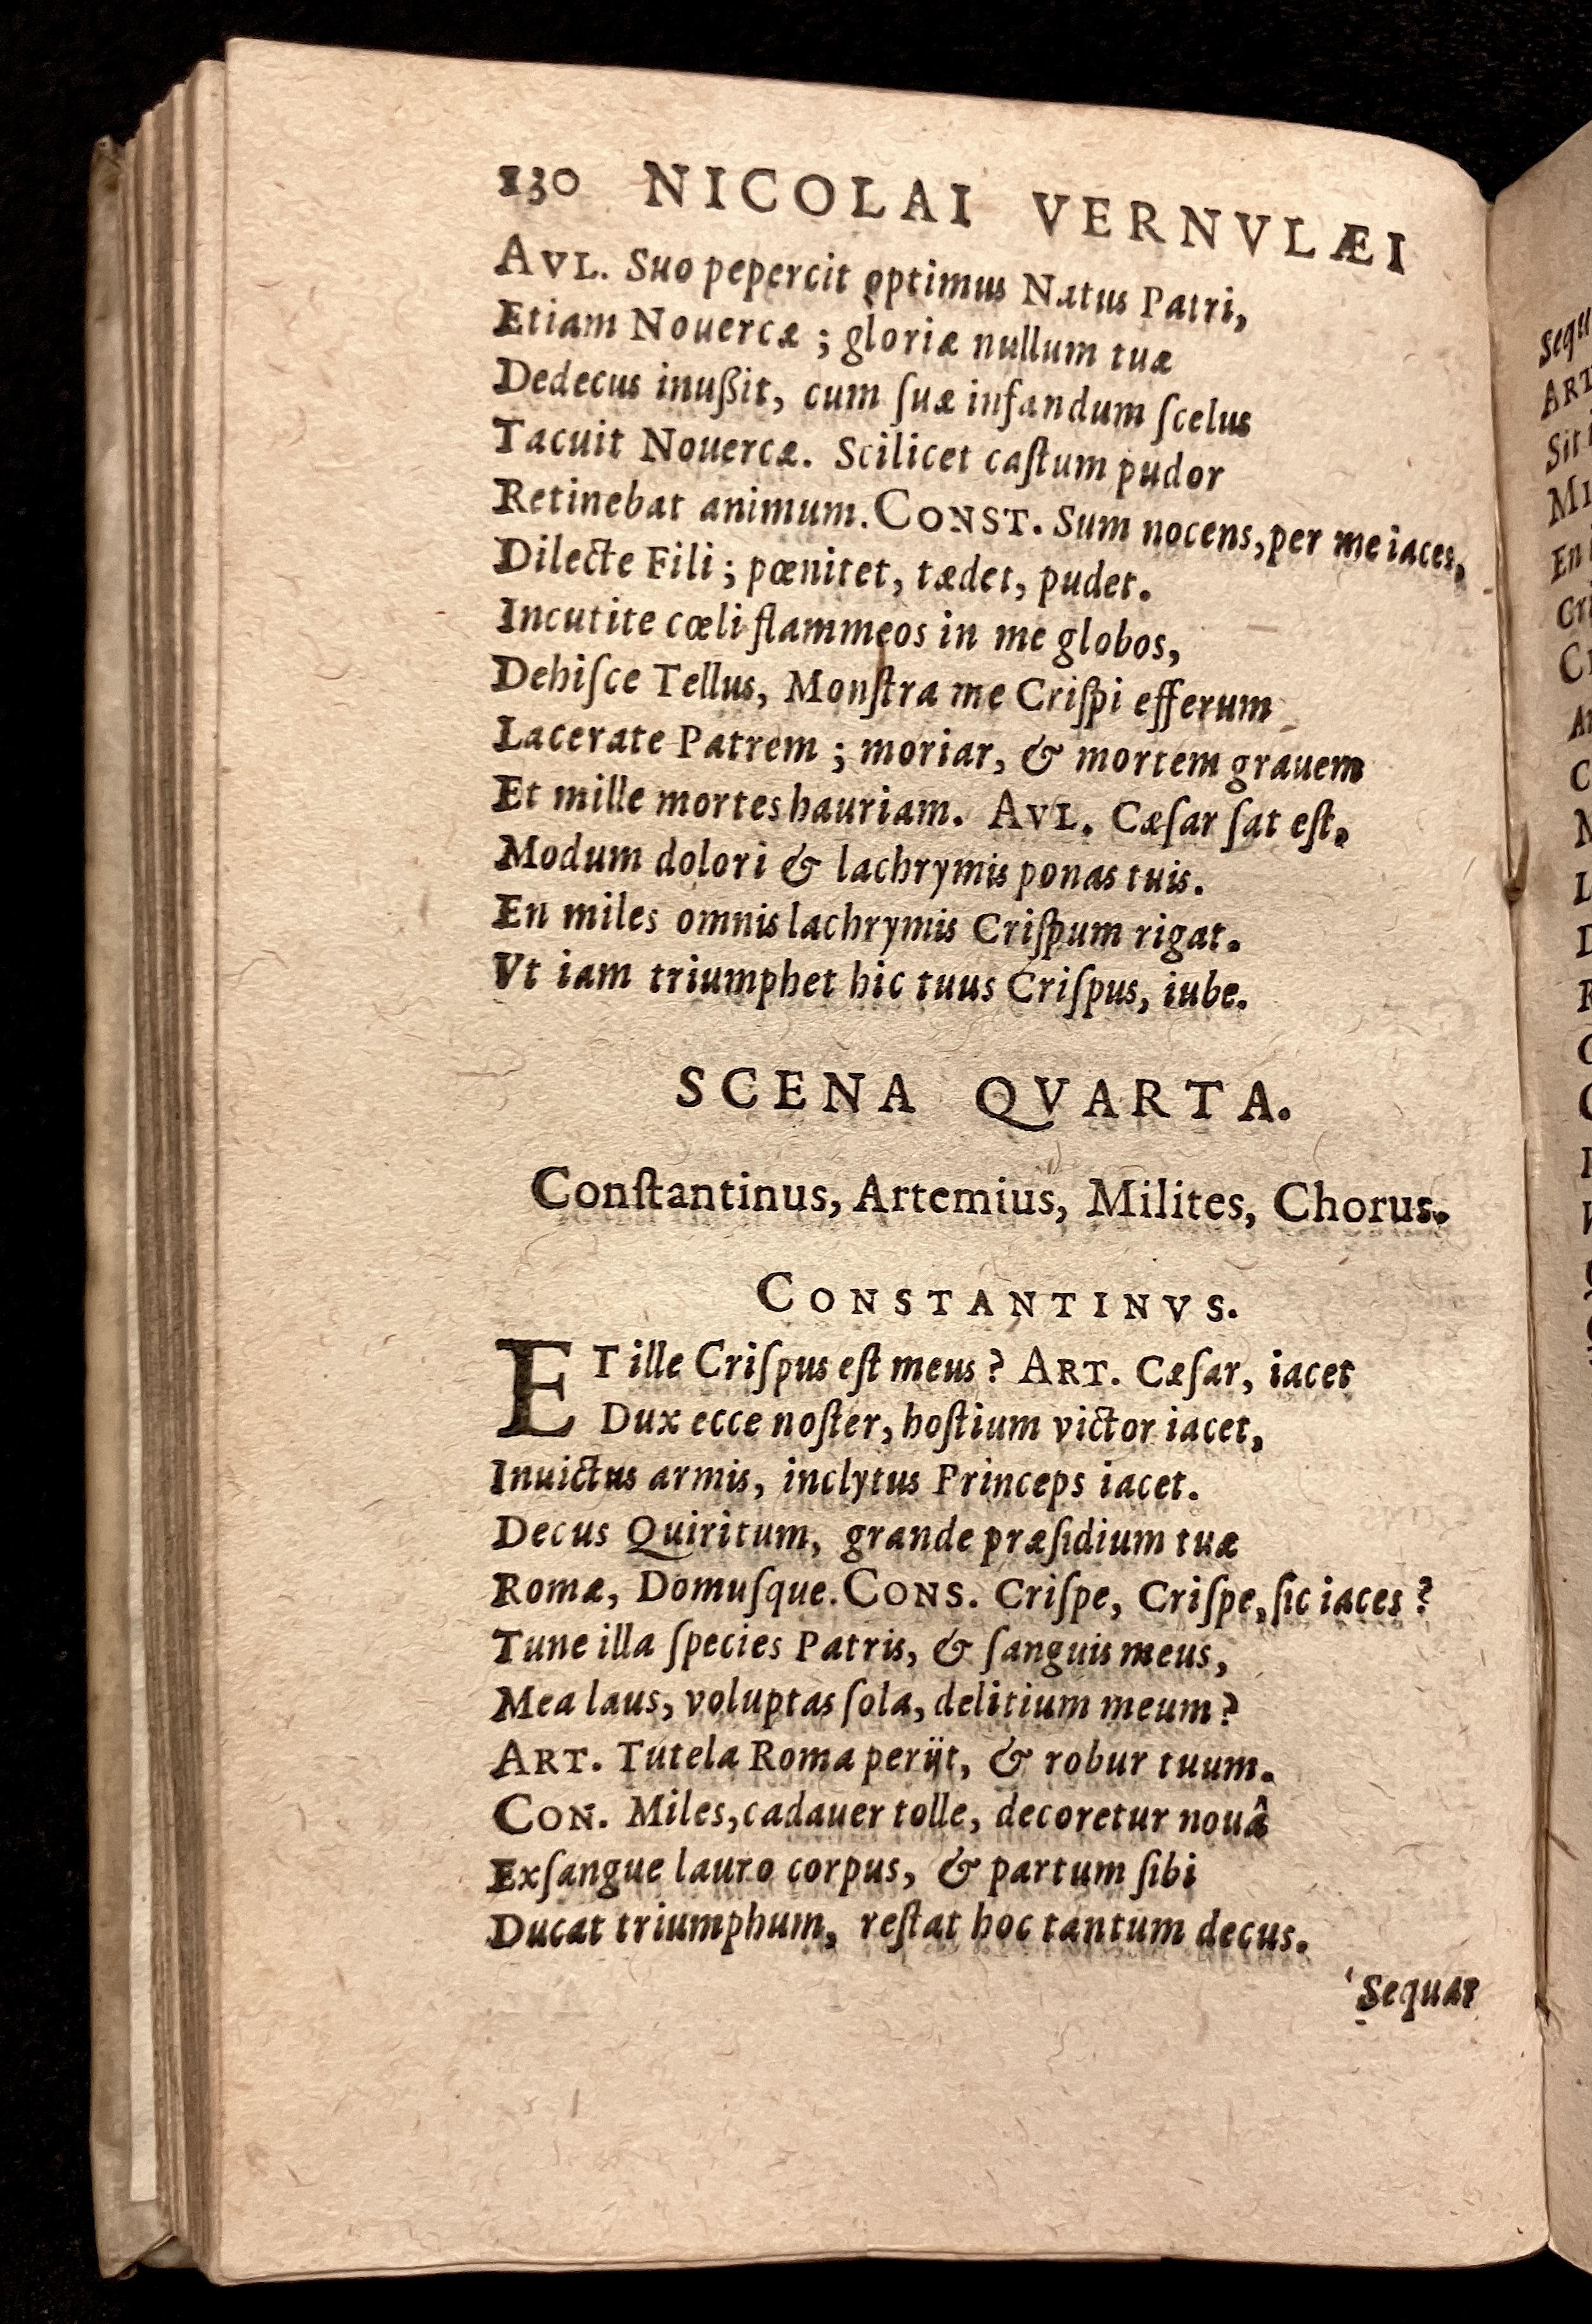 130 NICOLAI VERNVLÆI
AVL. Suo pepercit optimus Natus Patri,
Etiam Nouercæ ; gloriæ nullum tuæ
Dedecus inußit, cum ſuæ infandum ſcelus
Tacuit Nouercæ. Scilicet caſtum pudor
Retinebat animum. CONST. Sum nocens, per me iaces,
Dilecte Fili ; pœnitet, tædet, pudet.
Incutite cœli flammeos in me globos,
Dehiſce Tellus, Monſtra me Criſpi efferum
Lacerate Patrem ; moriar, & mortem grauem
Et mille mortes hauriam. AVL. Cæſar ſat eſt,
Modum dolori & lachrymis ponas tuis.
En miles omnis lachrymis Criſpum rigat.
Vt iam triumphet hic tuus Criſpus, iube.
SCENA QVARTA.
Conſtantinus, Artemius, Milites, Chorus.
CONSTANTINVS.
ET ille Criſpus eſt meus ? ART. Cæſar, iacet
Dux ecce noſter, hoſtium victor iacet,
Inuictus armis, inclytus Princeps iacet.
Decus Quiritum, grande præſidium tuæ
Romæ, Domuſque. CONS. Criſpe, Criſpe, ſic iaces ?
Tune illa ſpecies Patris, & ſanguis meus,
Mea laus, voluptas ſola, delitium meum ?
ART. Tutela Roma perijt, & robur tuum.
CON. Miles, cadauer tolle, decoretur nouâ
Exſangue lauro corpus, & partum ſibi
Ducat triumphum, reſtat hoc tantum decus.
Sequar
Sequ
ART
Sit
MI
En
Cri